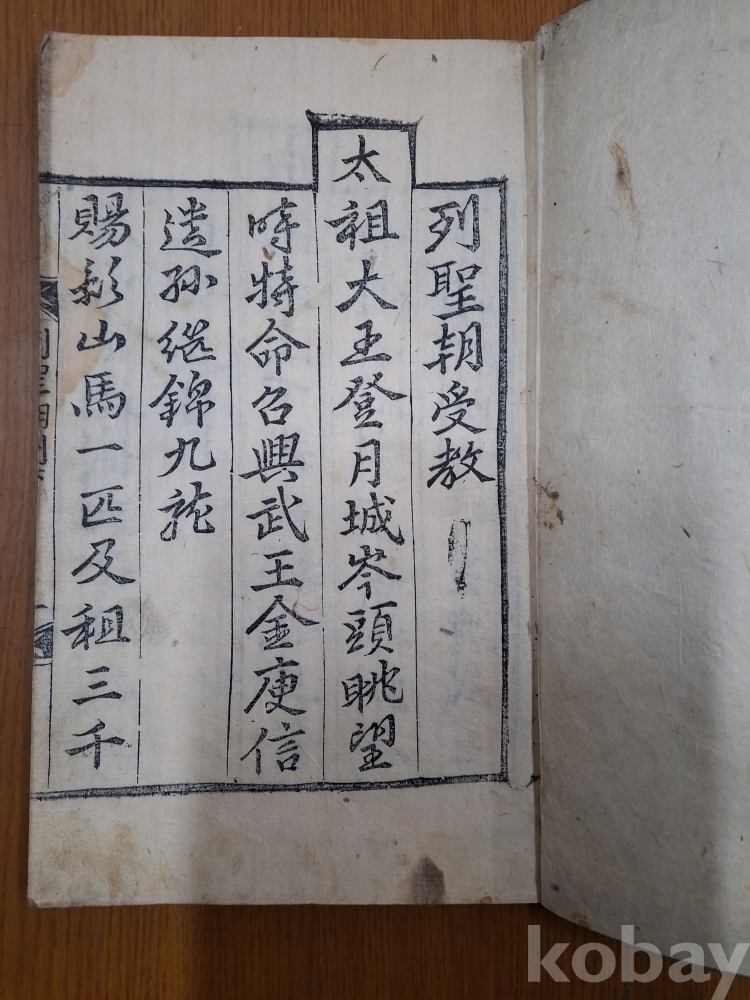 列聖朝受教
太祖大王登月城岑頭眺望
時特命召興武王金庾信
遺孫継錦九龍
賜山馬一匹及租三千
kobay